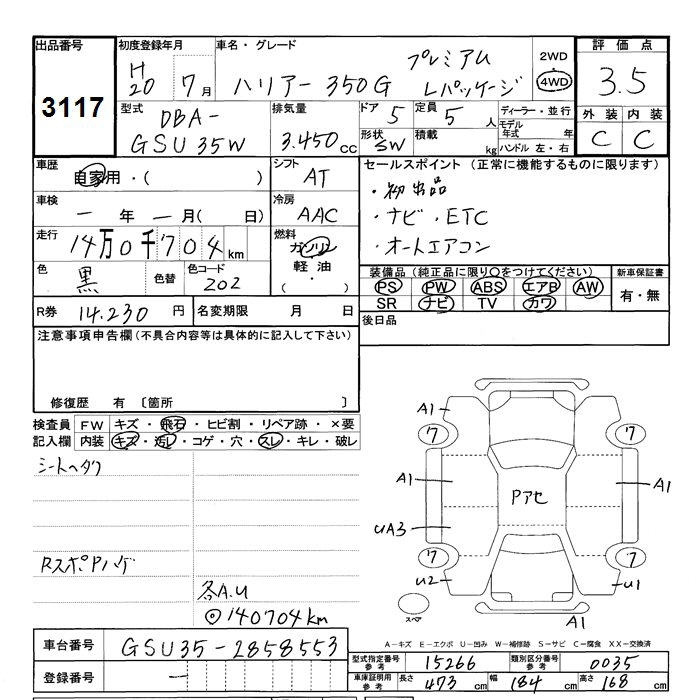 出品番号 初度登録年月 車名・グレード 評価点
3117
H20 7月
ハリアー 350G プレミアム
Lパッケージ
2WD
4WD
3.5
型式 DBA-
GSU35W
排気量 3.450cc
ドア 5 定員 5人
形状 SW 積載 kg
ディーラー・並行
モデル年式 年
ハンドル 左・右
外装 内装
C C
車歴 自家用・( )
シフト AT
車検 ー年ー月( 日)
冷房 AAC
走行 14万0千704km
燃料 ガソリン
軽油
・( )
色 黒 色替 色コード 202
R券 14.230円 名変期限 月 日
セールスポイント(正常に機能するものに限ります)
・初出品
・ナビ・ETC
・オートエアコン
装備品(純正品に限り〇をつけてください) 新車保証書
PS PW ABS エアB AW 有・無
SR ナビ TV カワ
後日品
注意事項申告欄(不具合内容等は具体的に記入して下さい)
修復歴 有 〔箇所 〕
検査員 FW キズ・飛石・ヒビ割・リペア跡・×要
記入欄 内装 キズ・汚レ・コゲ・穴・スレ・キレ・破レ
シートヘタク
RスポPハゲ
各A.U
◎140704km
A1
7 7
A1 A1
Pアセ
UA3
7 7
U2 U1
スペア A1
A-キズ E-エクボ U-凹み W-補修跡 S-サビ C-腐食 XX-交換済
車台番号 GSU35-2858553
登録番号 ー
型式指定番号 参考 15266 類別区分番号 参考 0035
車庫証明用 参考 長さ 473cm 幅 184cm 高さ 168cm